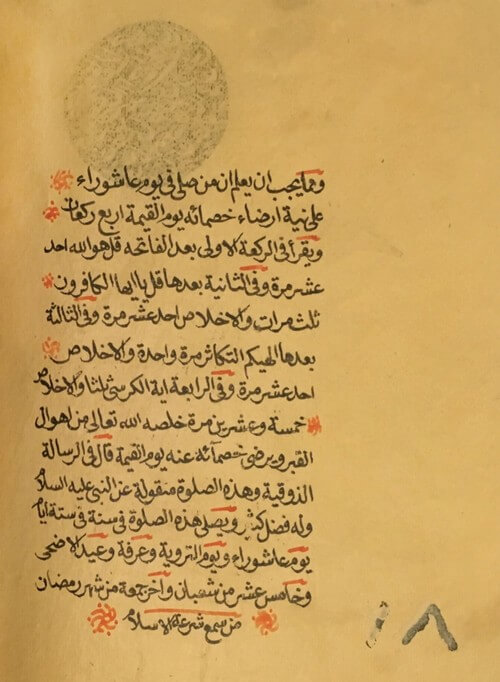 ومما يجب ان يعلم ان من صلى في يوم عاشوراء
على نية ارضاء خصمائه يوم القيمة اربع ركعات
ويقرأ في الركعة الاولى بعد الفاتحه قل هو الله احد
عشر مرة وفي الثانية بعدها قل يا ايها الكافرون
ثلث مرات والاخلاص احد عشر مرة وفي الثالثة
بعدها الهيكم التكاثر مرة واحدة والاخلاص
احد عشر مرة وفي الرابعة اية الكرسي ثلثا والاخلاص
خمسة وعشرين مرة خلصه الله تعالى من اهوال
القبر ويرضى خصمآئه عنه يوم القيمة قال في الرسالة
الذوقية وهذه الصلوة منقولة عن النبي عليه السلام
وله فضل كثير ويصلى هذه الصلوة في سنة في ستة أيام
يوم عاشوراء ويوم التروية وعرفة وعيد الاضحى
وخامس عشر من شعبان وآخر جمعة من شهر رمضان
من شرعة الاسلام
١٨